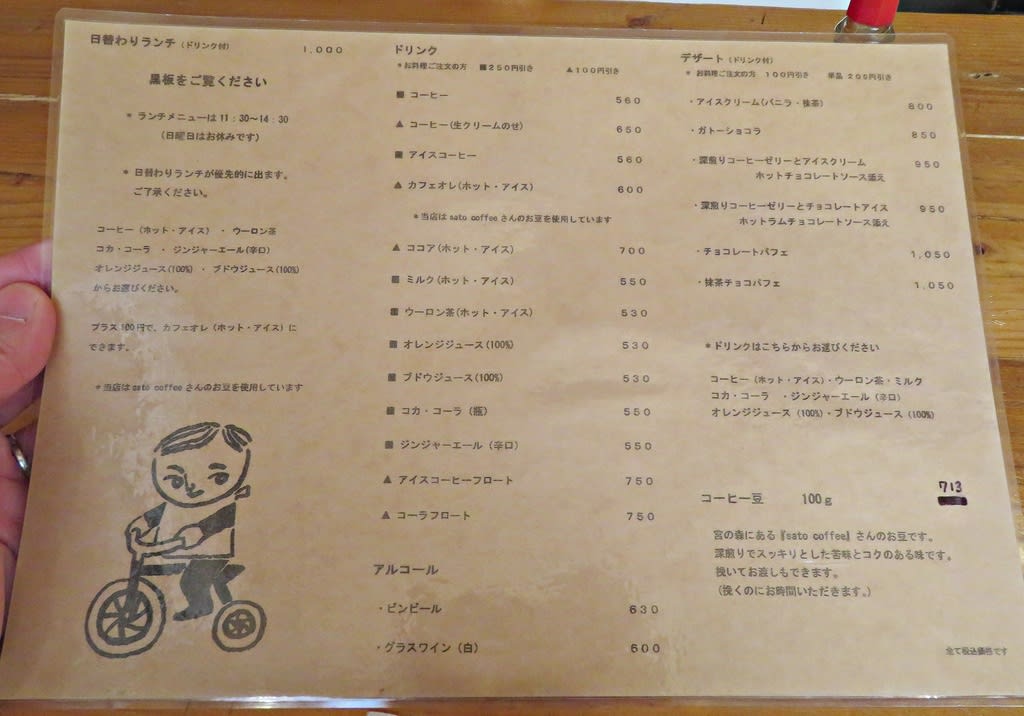 日替わりランチ（ドリンク付） 1,000
黒板をご覧ください
＊ ランチメニューは11：30～14：30
（日曜日はお休みです）
＊ 日替わりランチが優先的に出ます。
ご了承ください。
コーヒー（ホット・アイス） ・ ウーロン茶
コカ・コーラ ・ ジンジャーエール(辛口)
オレンジジュース(100%) ・ ブドウジュース(100%)
からお選びください。
プラス100円で、カフェオレ（ホット・アイス）に
できます。
＊当店はsato coffeeさんのお豆を使用しています
ドリンク
＊お料理ご注文の方 ■250円引き ▲100円引き
■ コーヒー 560
▲ コーヒー(生クリームのせ) 650
■ アイスコーヒー 560
▲ カフェオレ(ホット・アイス) 600
＊当店はsato coffeeさんのお豆を使用しています
▲ ココア(ホット・アイス) 700
■ ミルク(ホット・アイス) 550
■ ウーロン茶(ホット・アイス) 530
■ オレンジジュース(100%) 530
■ ブドウジュース(100%) 530
■ コカ・コーラ（瓶） 550
■ ジンジャーエール（辛口） 550
▲ アイスコーヒーフロート 750
▲ コーラフロート 750
アルコール
・ビンビール 630
・グラスワイン（白） 600
デザート（ドリンク付）
＊ お料理ご注文の方 100円引き 単品 200円引き
・アイスクリーム(バニラ・抹茶) 800
・ガトーショコラ 850
・深煎りコーヒーゼリーとアイスクリーム 950
ホットチョコレートソース添え
・深煎りコーヒーゼリーとチョコレートアイス 950
ホットラムチョコレートソース添え
・チョコレートパフェ 1,050
・抹茶チョコパフェ 1,050
＊ドリンクはこちらからお選びください
コーヒー（ホット・アイス）・ウーロン茶・ミルク
コカ・コーラ ・ジンジャーエール（辛口）
オレンジジュース（100%）・ブドウジュース（100%）
コーヒー豆 100g 713
宮の森にある『sato coffee』さんのお豆です。
深煎りでスッキリとした苦味とコクのある味です。
挽いてお渡しもできます。
（挽くのにお時間いただきます。）
全て税込価格です